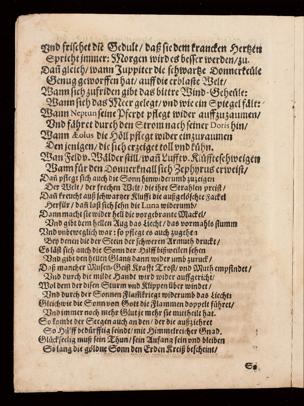 Vnd frischet die Gedult / daß sie dem krancken Hertzen
Spricht immer: Morgen wird es besser werden / zu.
Dañ gleich / wann Juppiter die schwartze Donnerkeüle
Genug geworffen hat / auff die erblaste Welt /
Wann sich zufriden gibt das bittre Wind-Geheüle:
Wann sich das Meer gelegt / vnd wie ein Spiegel fält:
Wann Neptun seine Pferde pflegt wider auffzuzaumen /
Vnd fähret durch den Strom nach seiner Doris hin /
Wann Æolus die Höll pflegt wider einzuraumen
Den jenigen / die sich erzeiget toll vnd kühn.
Wan Feld v. Wälder still / wañ Lufft v. Klüffte schweigen
Wann für den Donnerknall sich Zephyrus erweist /
Dañ pflegt sich auch die Sonn herwiderumb zuzeigen
Der Welt / der frechen Welt / die ihre Strahlen preist /
Dañ kreücht auß schwartzer Klufft die außgelöschte Fackel
Herfür / dañ läst sich sehn die Luna widerumb /
Dann macht sie wider hell die vorgebrante Mackel /
Vnd gibt dem hellen Aug das Liecht / das vormahls stumm
Vnd vnbeweglich war: so pflegt es auch zugehen
Bey denen die der Stein der schweren Armuth druckt /
Es läst sich auch die Sonn der Hülff bißweilen sehen
Vnd gibt den hellen Glantz dann wider vmb zuruck /
Daß mancher Musen-Geist Krafft / Trost / vnd Muth empfindet /
Vnd durch die milde Hand wird wider auffgericht
Wol dem der disen Sturm vnd Klippen über windet /
Vnd durch der Sonnen Klarheit kriegt widerumb das Liecht:
Gleich wie die Sonn von Gott die Flammen doppelt führet /
Vnd immer noch mehr Glut je mehr sie mittheilt hat.
So kombt der Seegen auch an den / der die außziehret
So Hülff bedürfftig seind / mit Himmelreicher Gnad.
Glückseelig muß sein Thun / sein Anfang sein vnd bleiben
So lang die göldne Sonn den Erden Kreiß bescheint /
So